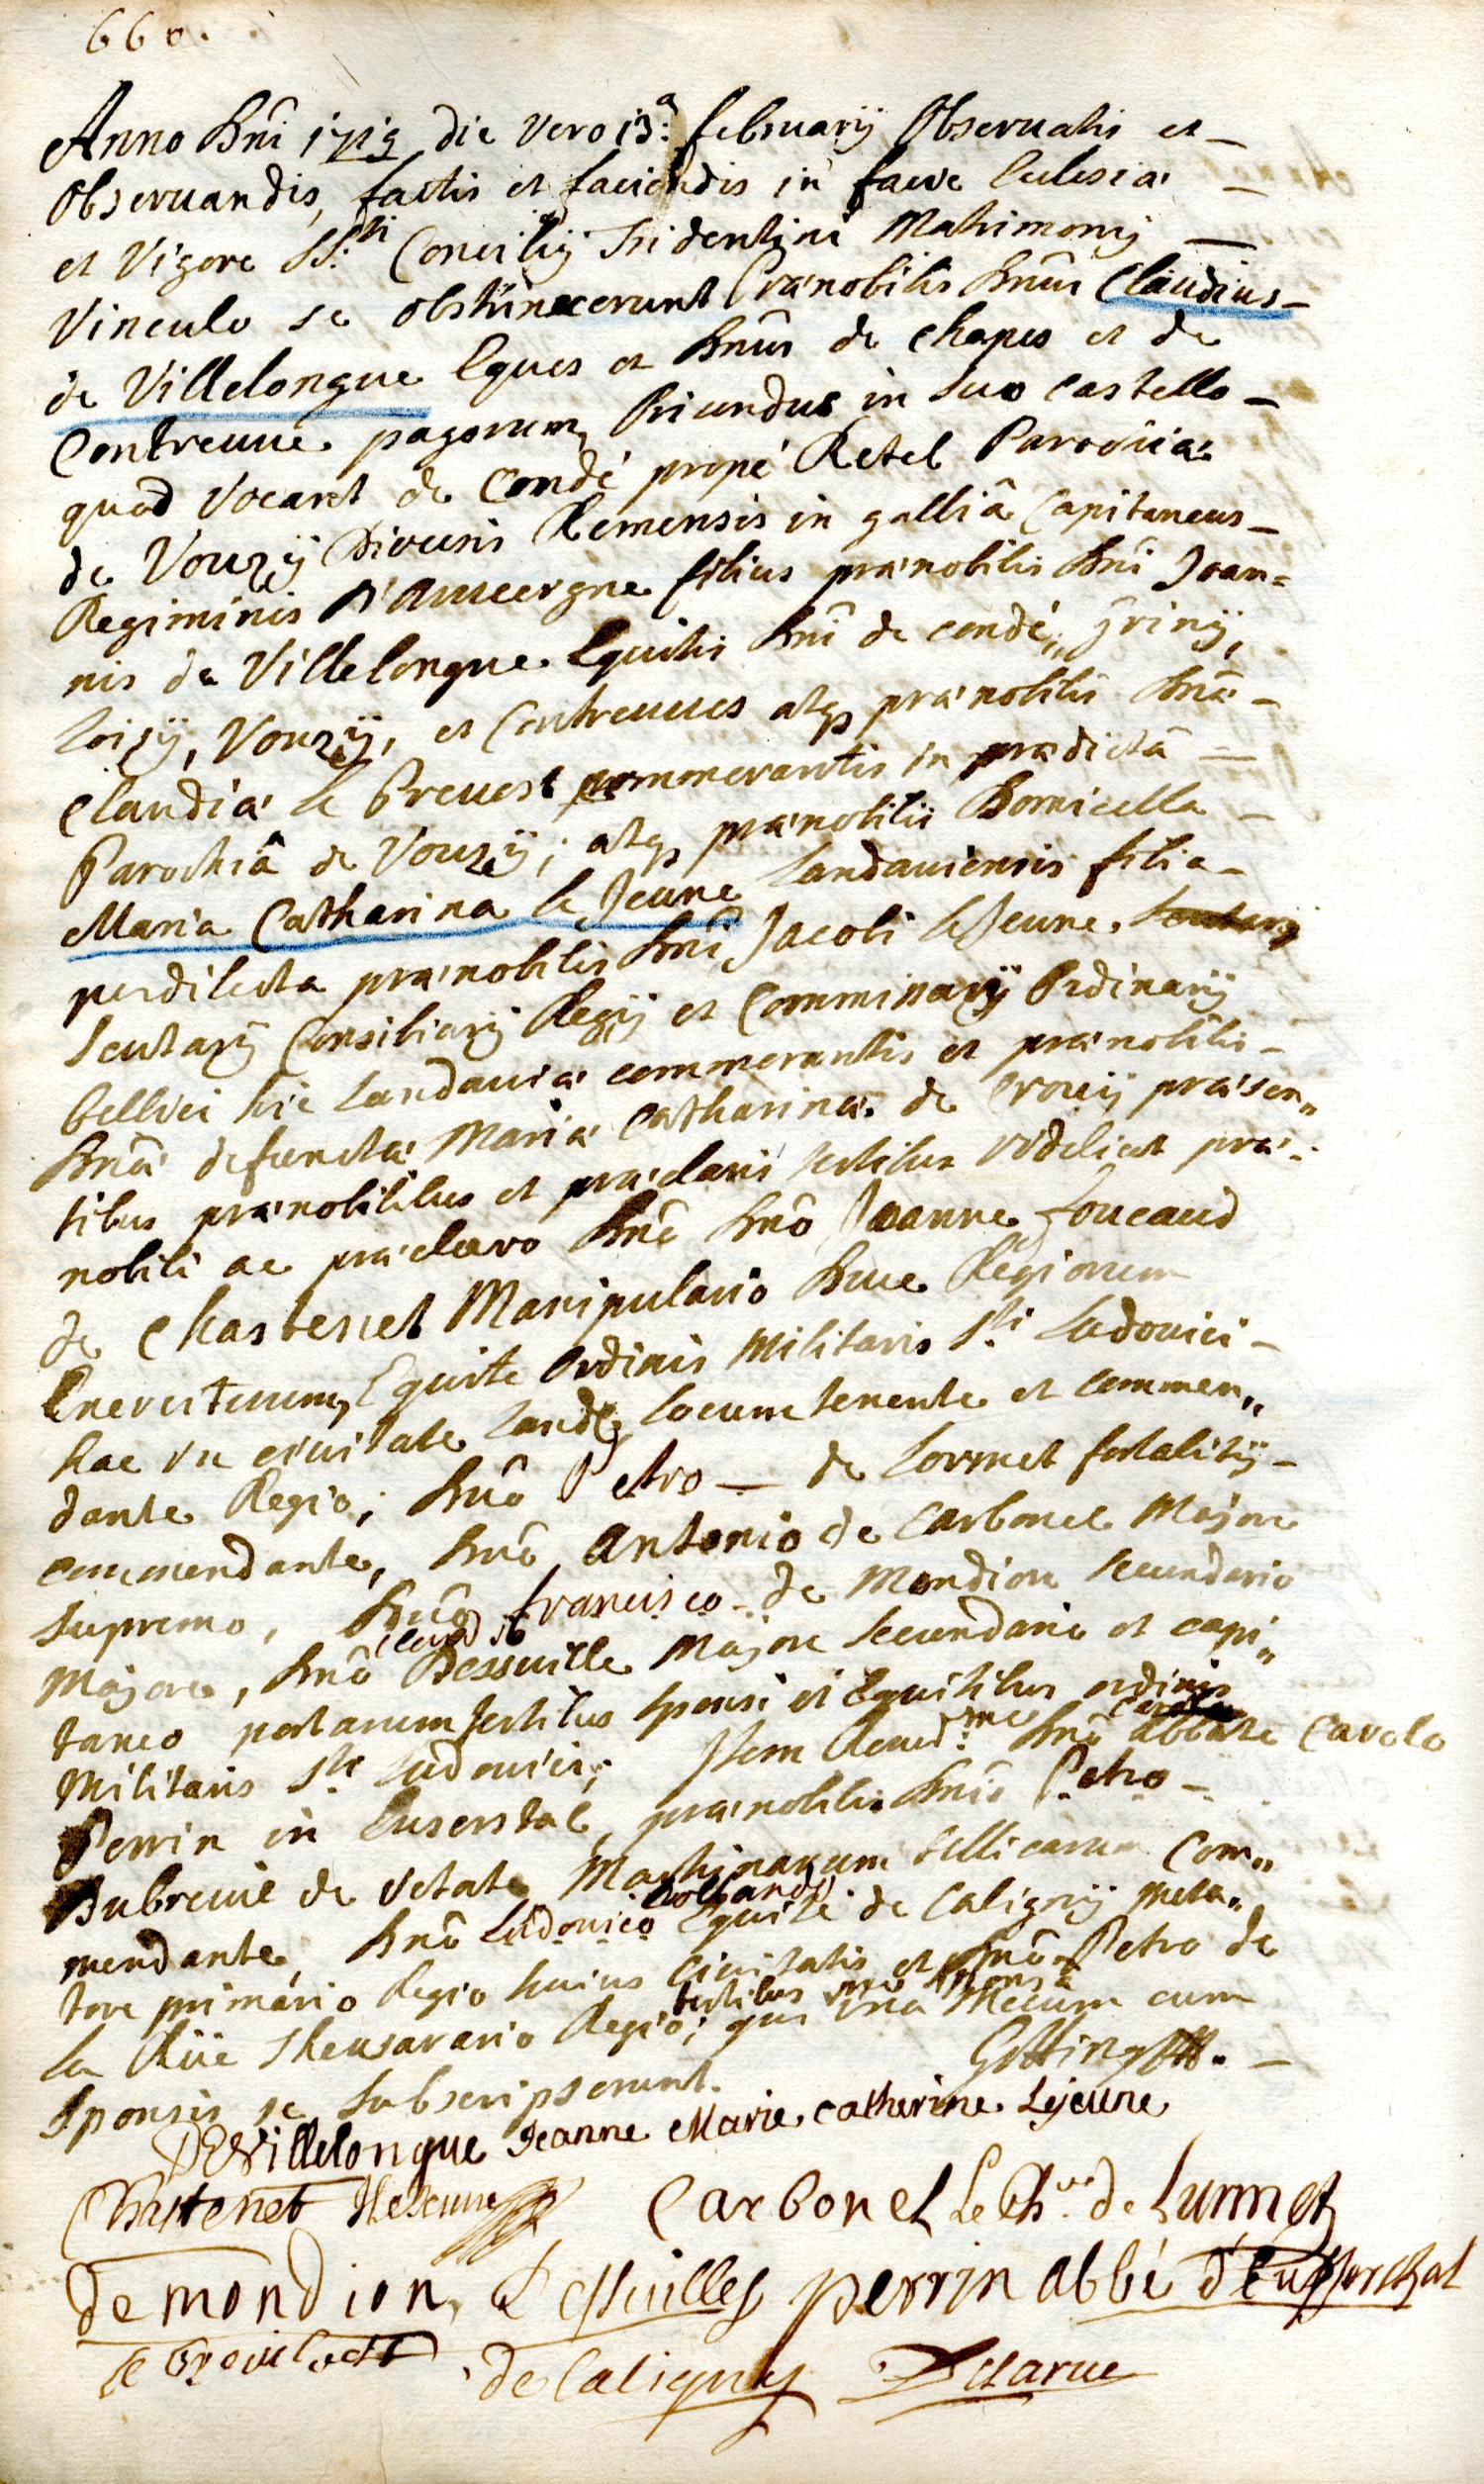 660.
Anno Dnî 1719 die vero 13.a februarij Observatis et
Observandis, factis et faciendis in facie Eclesiæ
et Vigore SS.ti Concilij Tridentini Matrimonij
Vinculo se obstrinxerunt Prænobilis Dnus Claudius
de Villelongue Eques et Dnus de Chapes et de
Contreuve pagorum, Oriundus in suo castello
quod vocant de Condé propé Retel Parochiæ
de Vouzÿ Diœcesis Remensis in galliâ Capitaneus
Regiminis D'Auvergne filius prænobilis Dnî Joan=
nis de Villelongue Equitis Dnî de condé, grinÿ,
loizÿ, Vouzÿ, et Contreuves atq prænobilis Dnæ
Claudiæ le Prevost commorantis in prædictâ
Parochiâ de Vouzÿ; atq prænobilis Domicella
Maria Catharina le Jeune Landaviensis filia
perdilecta prænobilis Dnî Jacobi le Jeune
Scutarÿ Consiliarij Regij et Commissarij Ordinarij
bellici hic Landaviæ commorantis et prænobilis
Dnæ defunctæ Mariæ Catharinæ de Crouij præsen"
tibus prænobilibus et præclaris testibus videlicet præ"
nobili ac præclaro Dnô Dnô Joanne Foucaud
de Chastenet Manipulario Duce Regiorum
Exercituum, Equite Ordinis Militaris S.ti Ludovici
hac in civitate Land locum tenente et commen"
dante Regio; Dnô Petro — de Lormet fortalitij
commendante, Dnô Antonio de Carbonel Majore
supremo, Dnô francisco de Mondion secundario
Majore, Dnô Dessuille Majore secundario et capi"
taneo portarum testibus sponsi et Equitibus ordinis
Militaris S.ti Ludovici; Item Reved.mo Dnô abbate Carolo
Perrin in Euserstal, prænobili Dnô Petro
Dubreuil de Machinarum bellicarum Com"
mendante, Dnô Ludovico Equite de Caligny meta"
tore primario Regio huius Civitatis et Dnô Petro de
la Rüe Thesaurario Regio; testibus sponsæ qui unâ Mecum cum
Sponsis se subscripserunt.
DEVillelongue Jeanne Marie catherine Lejeune
Chastenet Carbonel Le Ch.er de Lurmet
de mondion, Dessuilles perrin abbé d'Eusserthal
de Caligny Delarue